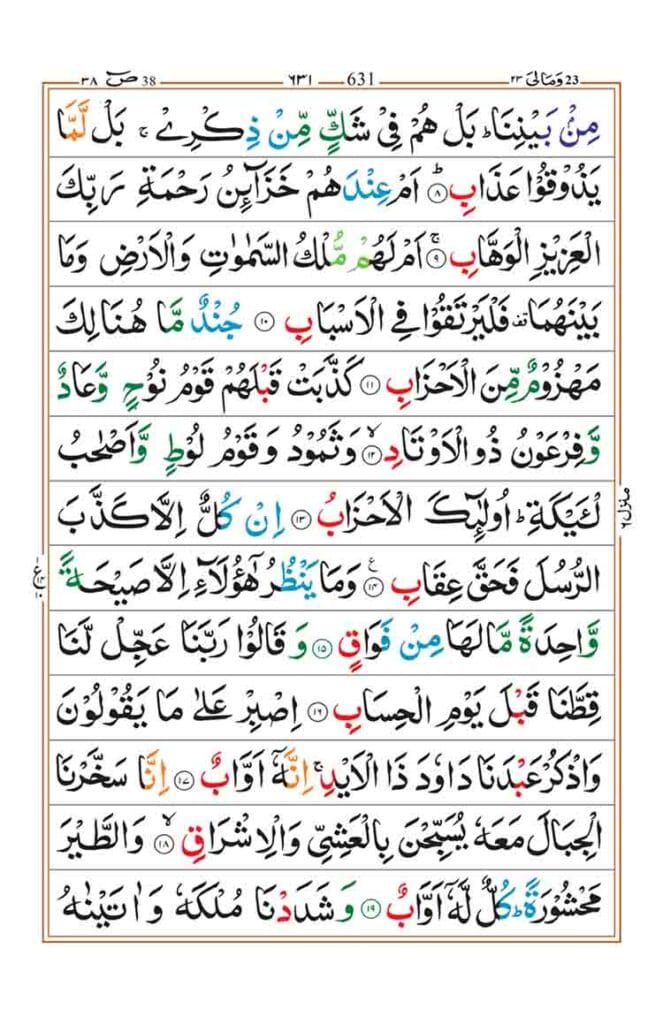 ٣٨ صٓ 38 ٦٣١ 631 ٢٣ وَمَالِىَ 23
مِنْۢ بَيْنِنَا ؕ بَلْ هُمْ فِىْ شَكٍّ مِّنْ ذِكْرِىْ ۚ بَلْ لَّمَّا
يَذُوْقُوْا عَذَابِ ؕ‏ ﴿۸﴾ اَمْ عِنْدَهُمْ خَزَآئِنُ رَحْمَةِ رَبِّكَ
الْعَزِيْزِ الْوَهَّابِ‌ ۚ‏ ﴿۹﴾ اَمْ لَهُمْ مُّلْكُ السَّمٰوٰتِ وَالْاَرْضِ وَمَا
بَيْنَهُمَا‌ قف فَلْيَرْتَقُوْا فِى الْاَسْبَابِ‏ ﴿۱۰﴾ جُنْدٌ مَّا هُنَالِكَ
مَهْزُوْمٌ مِّنَ الْاَحْزَابِ‏ ﴿۱۱﴾ كَذَّبَتْ قَبْلَهُمْ قَوْمُ نُوْحٍ وَّعَادٌ
وَّفِرْعَوْنُ ذُو الْاَوْتَادِۙ‏ ﴿۱۲﴾ وَثَمُوْدُ وَقَوْمُ لُوْطٍ وَّاَصْحٰبُ
لْئَيْكَةِ‌ ؕ اُولٰٓئِكَ الْاَحْزَابُ‏ ﴿۱۳﴾ اِنْ كُلٌّ اِلَّا كَذَّبَ
الرُّسُلَ فَحَقَّ عِقَابِ ‏ ﴿۱۴﴾ ع وَمَا يَنْظُرُ هٰٓؤُلَآءِ اِلَّا صَيْحَةً
وَّاحِدَةً مَّا لَهَا مِنْ فَوَاقٍ‏ ﴿۱۵﴾ وَقَالُوْا رَبَّنَا عَجِّلْ لَّنَا
قِطَّنَا قَبْلَ يَوْمِ الْحِسَابِ‏ ﴿۱۶﴾ اِصْبِرْ عَلٰى مَا يَقُوْلُوْنَ
وَاذْكُرْ عَبْدَنَا دَاوٗدَ ذَا الْاَيْدِ‌ ۚ اِنَّهٗۤ اَوَّابٌ‏ ﴿۱۷﴾ اِنَّا سَخَّرْنَا
الْجِبَالَ مَعَهٗ يُسَبِّحْنَ بِالْعَشِىِّ وَالْاِشْرَاقِۙ‏ ﴿۱۸﴾ وَالطَّيْرَ
مَحْشُوْرَةً ؕ كُلٌّ لَّهٗۤ اَوَّابٌ‏ ﴿۱۹﴾ وَشَدَدْنَا مُلْكَهٗ وَاٰتَيْنٰهُ
منزل ٦